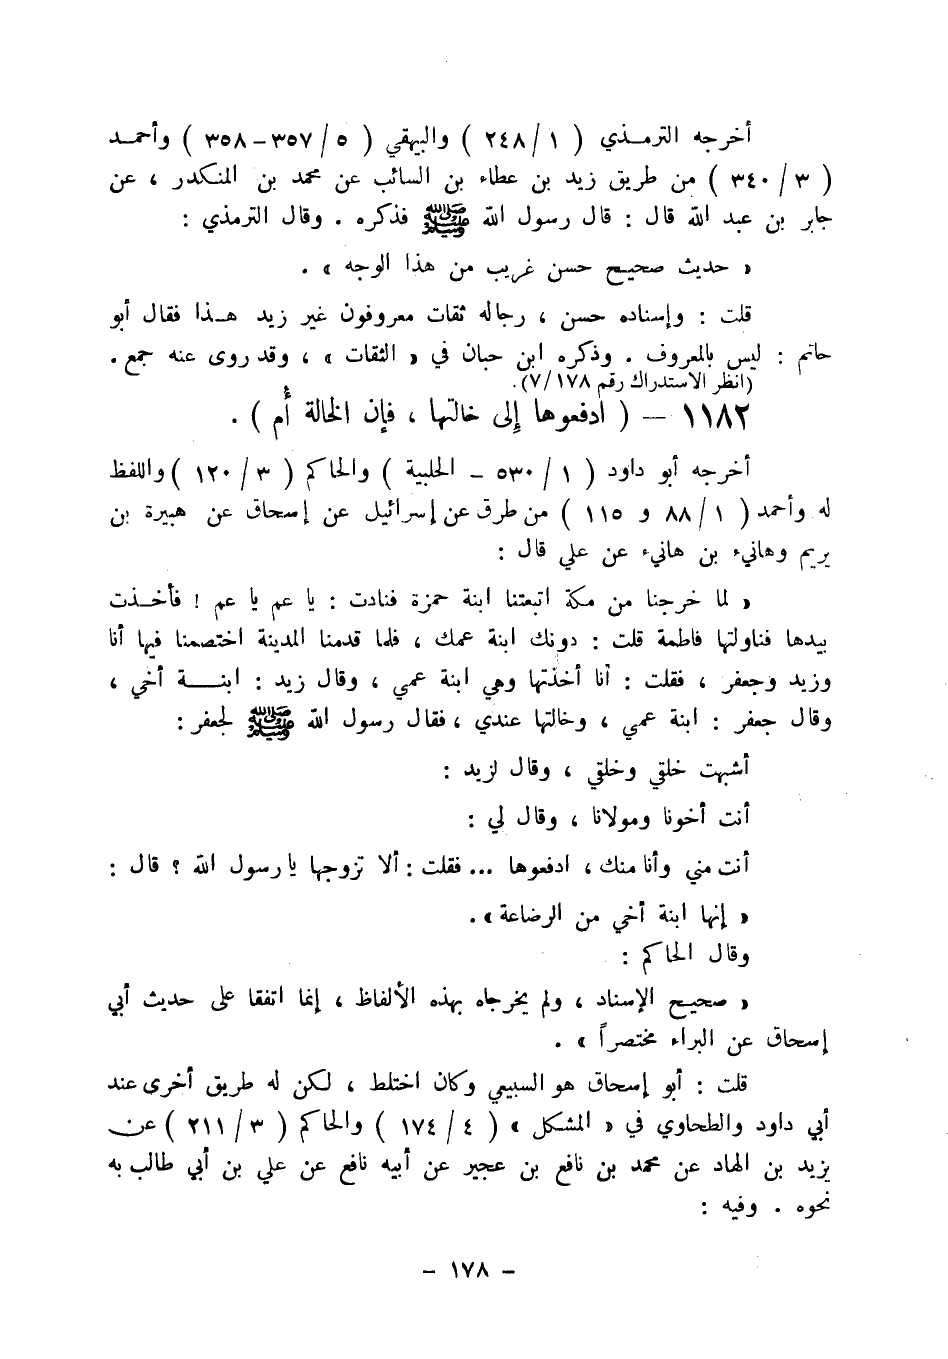 أخرجه الترمذي ( ١/ ٢٤٨ ) والبيهقي ( ٥ / ٣٥٧ - ٣٥٨ ) وأحمد
( ٣ / ٣٤٠ ) من طريق زيد بن عطاء بن السائب عن محمد بن المنكدر ، عن
جابر بن عبد الله قال : قال رسول الله ﷺ فذكره . وقال الترمذي :
« حديث صحيح حسن غريب من هذا الوجه » .
قلت : وإسناده حسن ، رجاله ثقات معروفون غير زيد هذا فقال أبو
حاتم : ليس بالمعروف . وذكره ابن حبان في « الثقات » ، وقد روى عنه جمع .
(انظر الاستدراك رقم ٧/١٧٨).
١١٨٢ - ( ادفعوها إلى خالتها ، فإن الخالة أُم ) .
أخرجه أبو داود ( ١ / ٥٣٠ - الحلبية ) والحاكم ( ٣ / ١٢٠ ) واللفظ
له وأحمد ( ١ / ٨٨ و ١١٥ ) من طرق عن إسرائيل عن إسحاق عن هبيرة بن
يريم وهانىء بن هانىء عن علي قال :
« لما خرجنا من مكة اتبعتنا ابنة حمزة فنادت : يا عم يا عم ! فأخذت
بيدها فناولتها فاطمة قلت : دونك ابنة عمك ، فلما قدمنا المدينة اختصمنا فيها أنا
وزيد وجعفر ، فقلت : أنا أخذتها وهي ابنة عمي ، وقال زيد : ابنة أخي ،
وقال جعفر : ابنة عمي ، وخالتها عندي ، فقال رسول الله ﷺ لجعفر :
أشبهت خلقي وخلقي ، وقال لزيد :
أنت أخونا ومولانا ، وقال لي :
أنت مني وأنا منك ، ادفعوها ... فقلت : ألا تزوجها يا رسول الله ؟ قال :
« إنها ابنة أخي من الرضاعة » .
وقال الحاكم :
« صحيح الإسناد ، ولم يخرجاه بهذه الألفاظ ، إنما اتفقا على حديث أبي
إسحاق عن البراء مختصراً » .
قلت : أبو إسحاق هو السبيعي وكان اختلط ، لكن له طريق أخرى عند
أبي داود والطحاوي في « المشكل » ( ٤ / ١٧٤ ) والحاكم ( ٣ / ٢١١ ) عن
يزيد بن الهاد عن محمد بن نافع بن عجير عن أبيه نافع عن علي بن أبي طالب به
نحوه . وفيه :
- ١٧٨ -